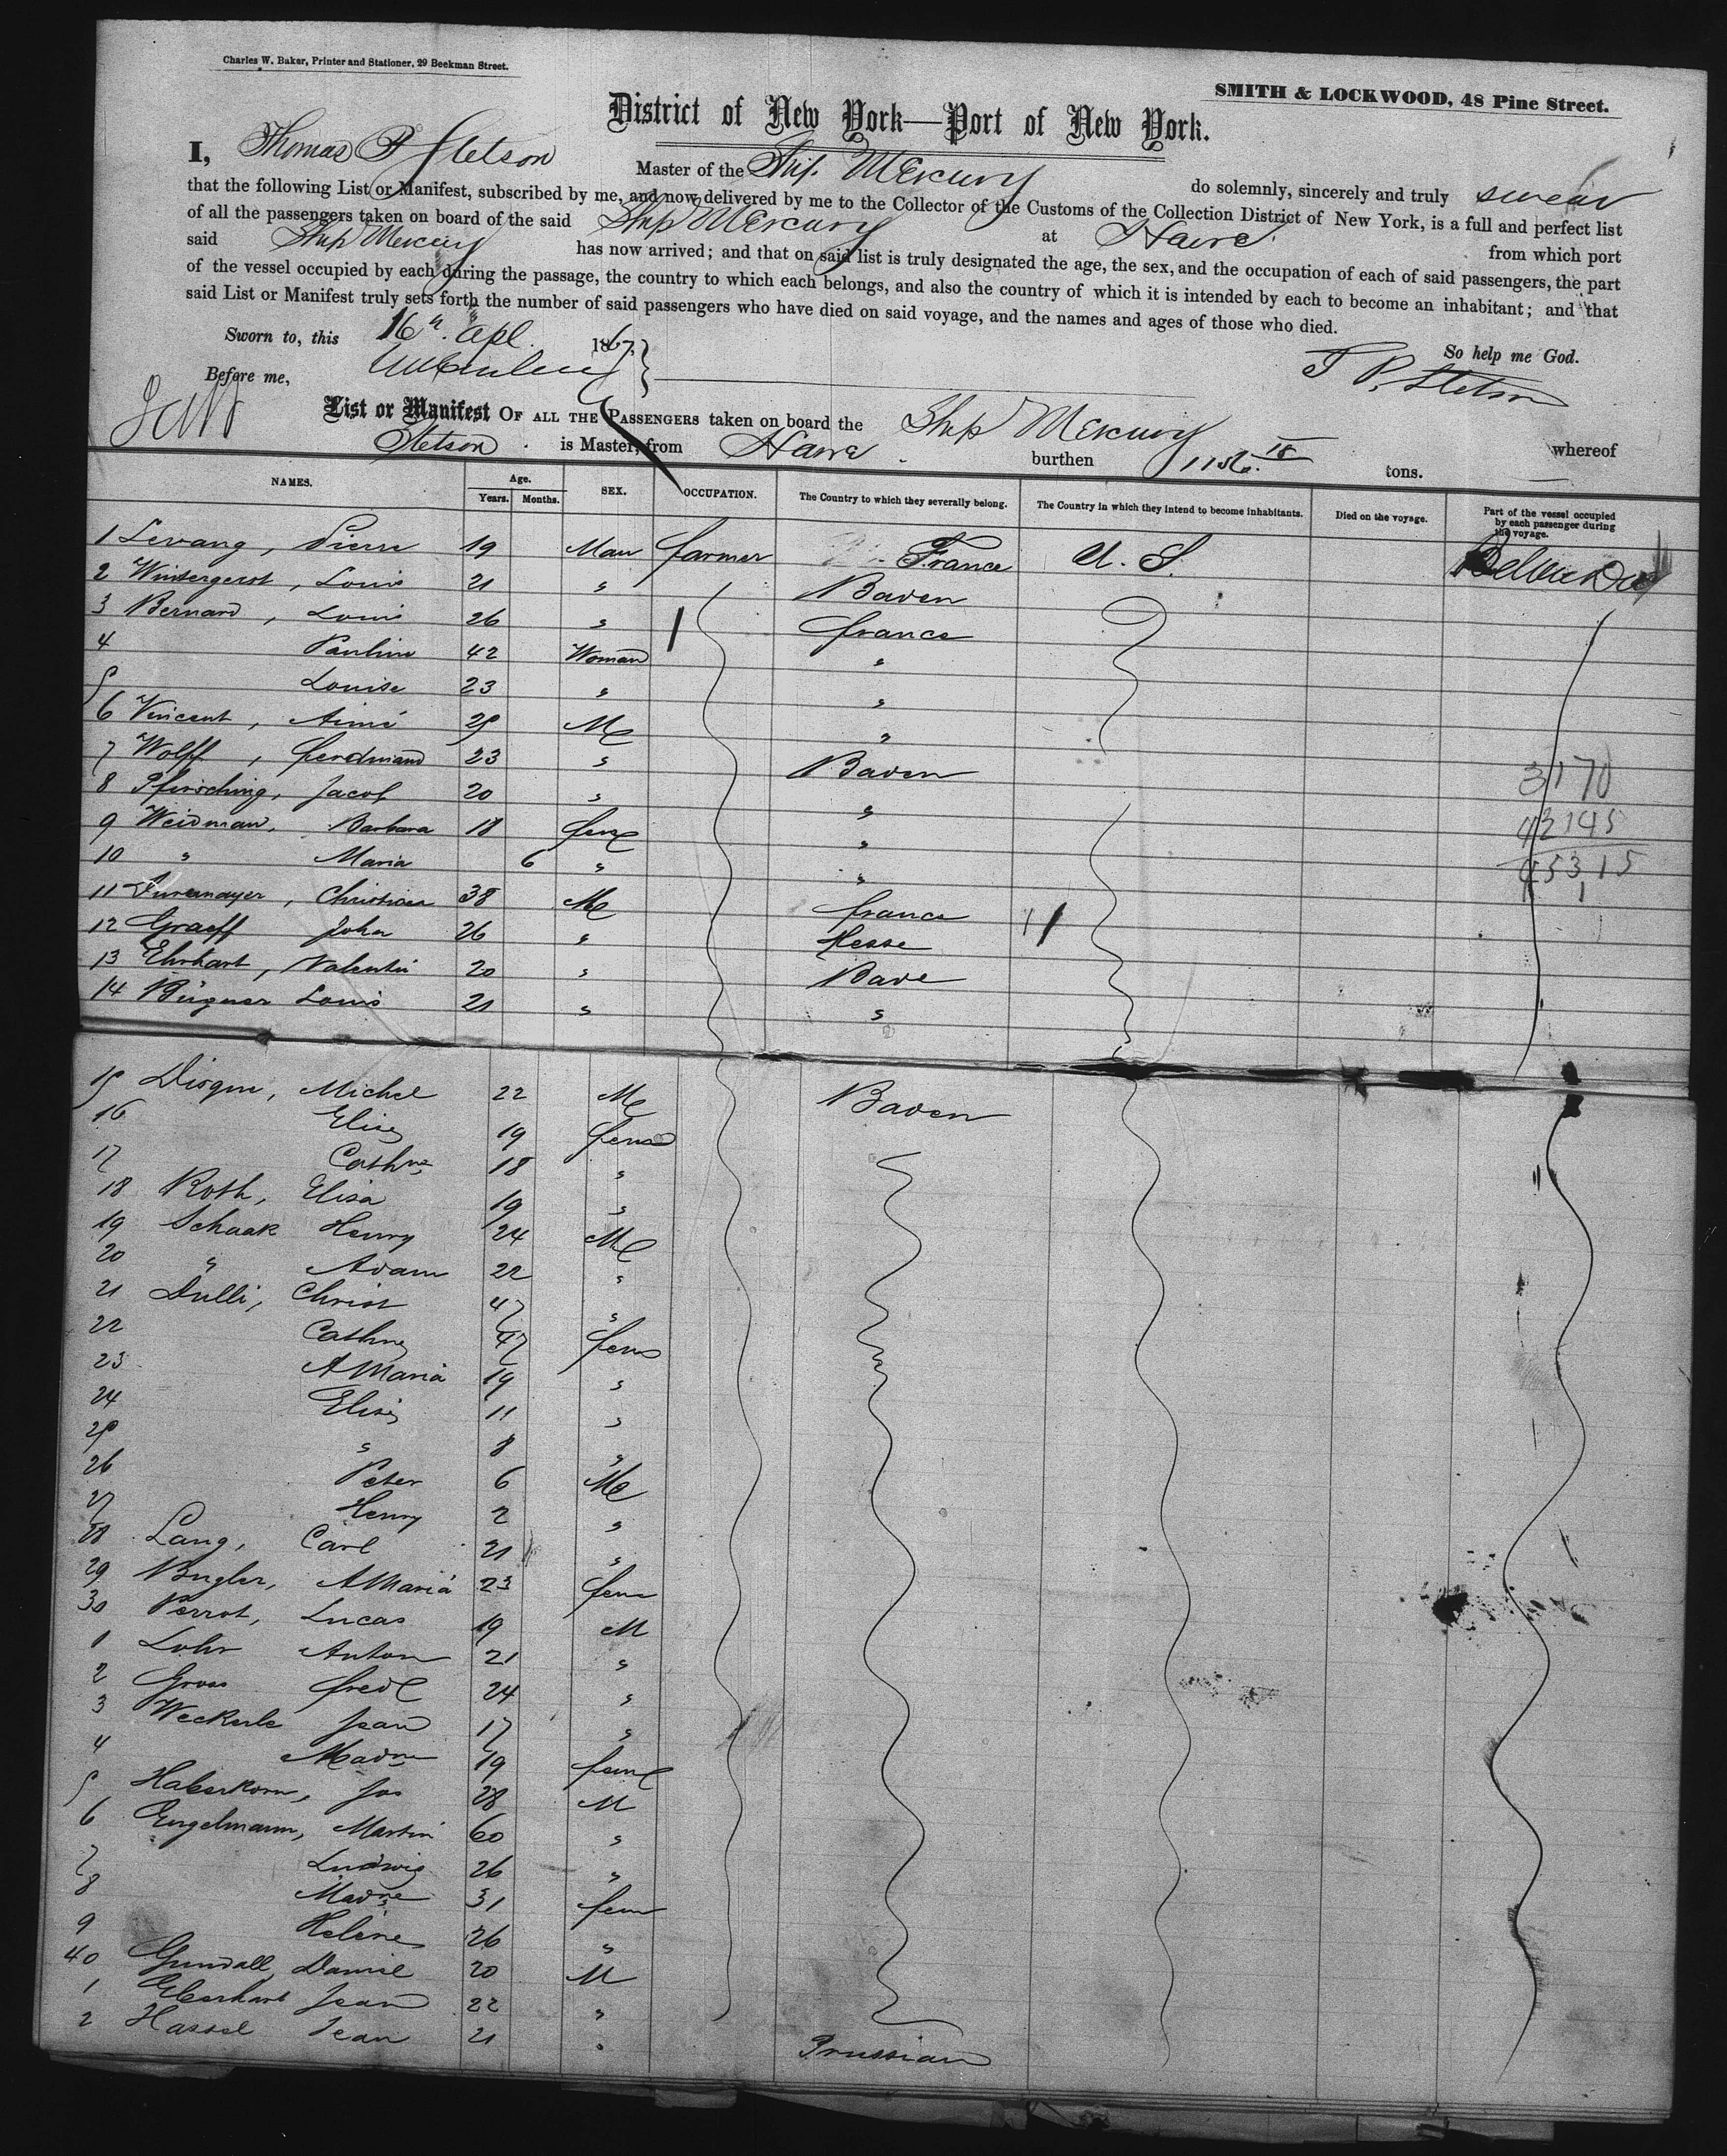 Charles W. Baker, Printer and Stationer, 29 Beekman Street.
SMITH & LOCKWOOD, 48 Pine Street.
District of New York—Port of New York.
I, Thomas P Stetson Master of the Ship Mercury do solemnly, sincerely and truly swear
that the following List or Manifest, subscribed by me, and now delivered by me to the Collector of the Customs of the Collection District of New York, is a full and perfect list
of all the passengers taken on board of the said Ship Mercury at Havre from which port
said Ship Mercury has now arrived; and that on said list is truly designated the age, the sex, and the occupation of each of said passengers, the part
of the vessel occupied by each during the passage, the country to which each belongs, and also the country of which it is intended by each to become an inhabitant; and that
said List or Manifest truly sets forth the number of said passengers who have died on said voyage, and the names and ages of those who died.
Sworn to, this 16th Apl. 1867. So help me God.
Before me, T P. Stetson
List or Manifest OF ALL THE PASSENGERS taken on board the Ship Mercury whereof
Stetson is Master, from Havre burthen tons.
NAMES. Age. Years. Months. SEX. OCCUPATION. The Country to which they severally belong. The Country in which they intend to become inhabitants. Died on the voyage. Part of the vessel occupied by each passenger during the voyage.
1 Levang, Pierre 19 Man farmer France U. S.
2 Wintergerst, Louis 21 " Baden
3 Bernard, Louis 26 " france
4 Pauline 42 Woman "
5 Louise 23 " "
6 Vincent, Aimé 25 Me "
7 Wolff, ferdinand 23 " Baden
8 Pfirsching, Jacob 20 " "
9 Weidman, Barbara 18 feme "
10 " Maria 6 " "
11 Christian 38 Me france
12 Graeff John 26 " Hesse
13 Ehrhart, Valentin 20 " Bade
14 Bügner Louis 21 " "
3170
42145
45315
15 Disque, Michel 22 Me Baden
16 Elise 19 feme
17 Cathne 18 "
18 Roth, Elisa 19 "
19 Schaak Henry 24 Me
20 " Adam 22 "
21 Dulli, Christ 47 "
22 Cathne 47 fem
23 AMaria 19 "
24 Elise 11 "
25 " 8 "
26 Peter 6 Me
27 Henry 2 "
28 Lang, Carl 21 "
29 Bugler, AMaria 23 fem
30 Perrot, Lucas 19 M
1 Lohr Anton 21 "
2 Gross fred 24 "
3 Weckerle Jean 17 "
4 Madne 19 feme
5 Haberkorn, Jos 28 M
6 Engelmann, Martin 60 "
7 Ludwig 26 "
8 Madne 31 fem
9 Helene 26 "
40 Gundall Daniel 20 M
1 Eberhart Jean 22 "
2 Hassel Jean 21 " Prussian